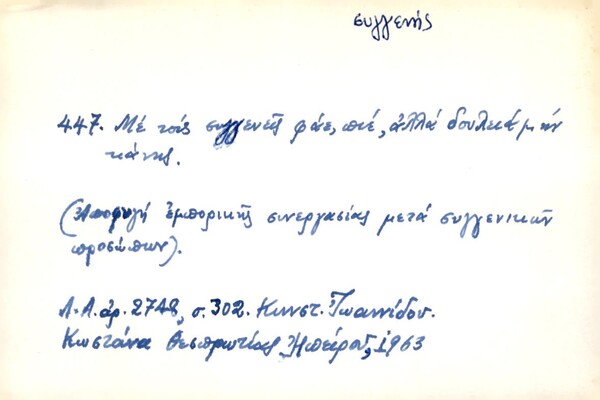 συγγενής
447. Μέ τούς συγγενεῖς φάε, πιέ, ἀλλά δουλειά μήν
κάνης.
(Ἀποφυγή ἐμπορικῆς συνεργασίας μετά συγγενικῶν
προσώπων).
Λ.Α. ἀρ. 2748, σ. 302. Κωνστ. Ἰωαννίδου.
Κωστάνα Θεσπρωτίας Ἠπείρου, 1963